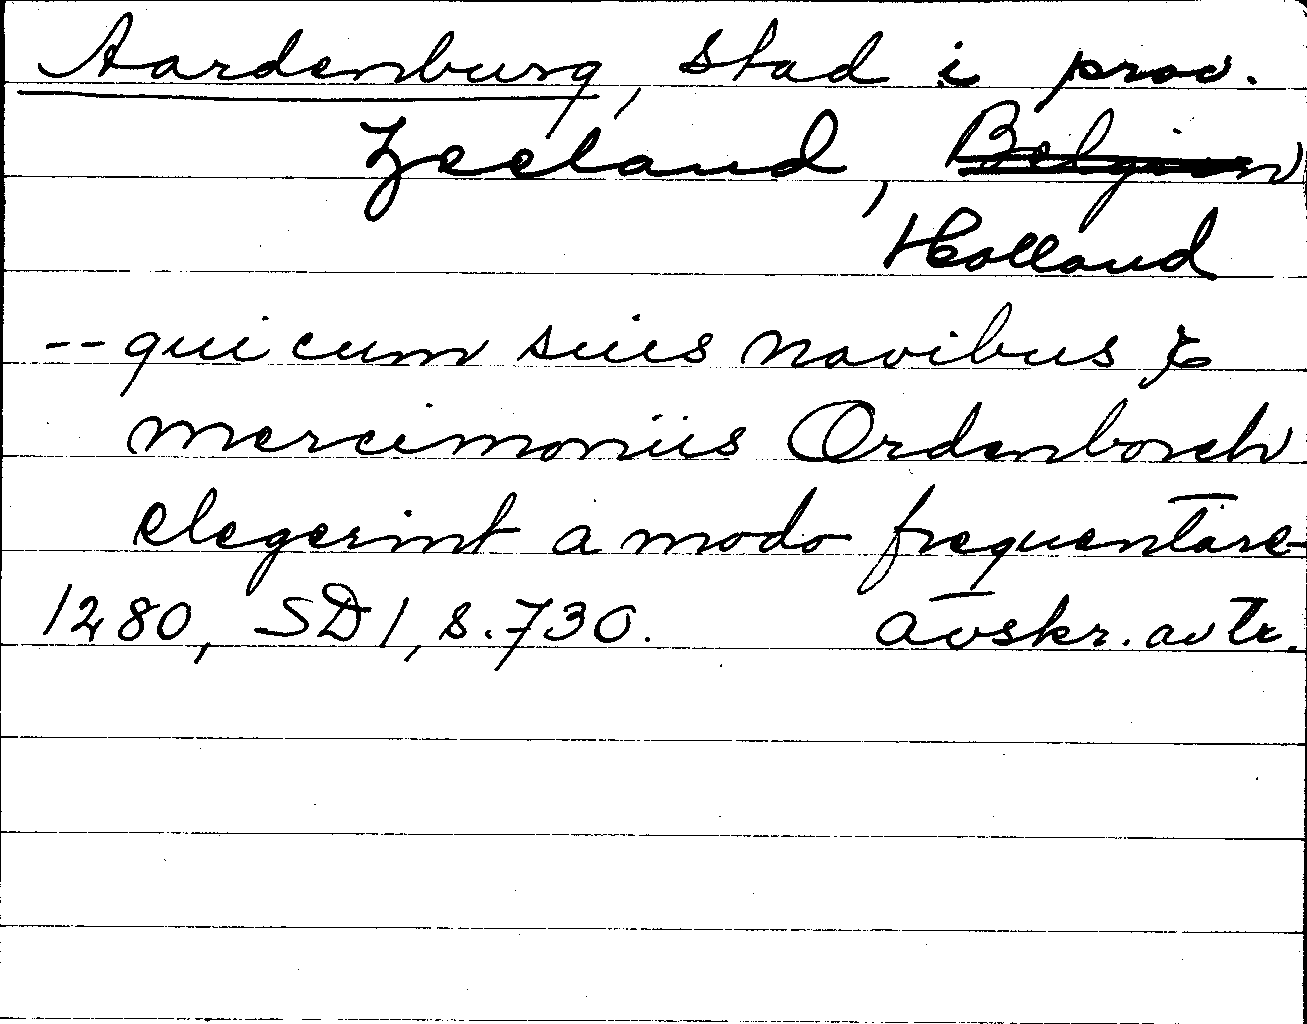 Aardenburg, stad i prov.
Zeeland, Belgien
Holland
-- qui cum suis navibus &
mercimoniis Ordenborch
elegerint a modo frequentare
1280, SD 1, s. 730. avskr. av tr.